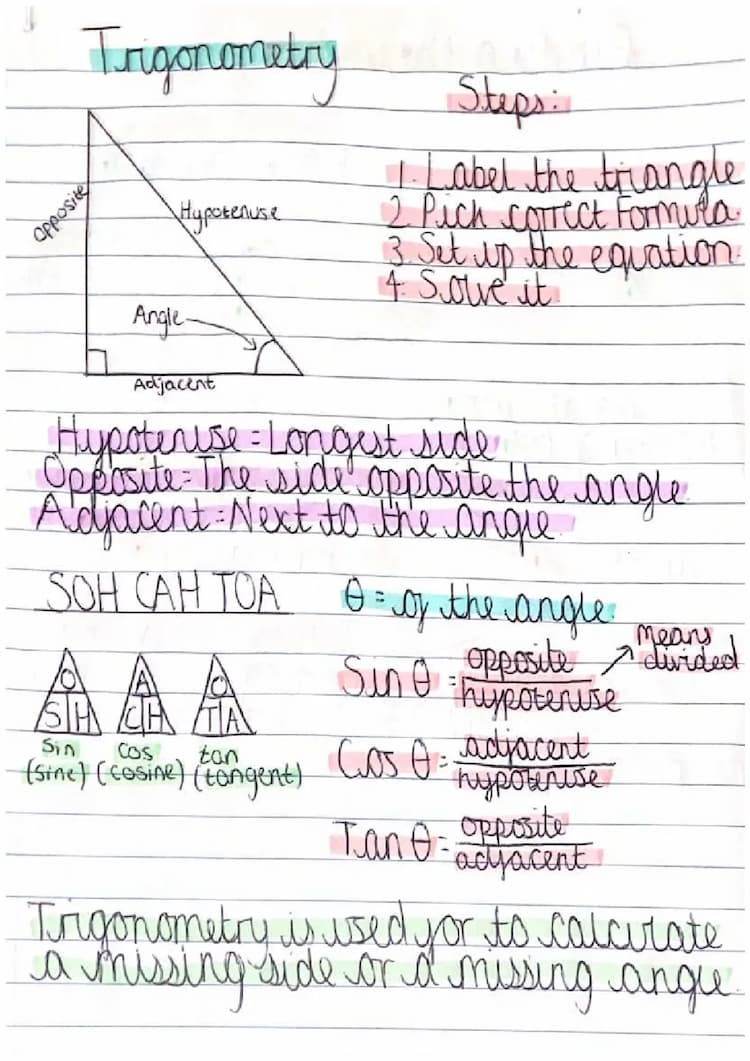 Trigonometry
Steps:
1. Label the triangle
2. Pick correct Formula.
3. Set up the equation.
4. Solve it
opposite
Hypotenuse
Angle
Adjacent
Hypotenuse = Longest side
Opposite = The side opposite the angle.
Adjacent = Next to the angle.
SOH CAH TOA
θ = of the angle.
O
S H
A
C H
O
T A
Sin
(sine)
Cos
(cosine)
tan
(tangent)
Sin θ = opposite
hypotenuse
means
divided
Cos θ = adjacent
hypotenuse
Tan θ = opposite
adjacent
Trigonometry is used for to calculate
a missing side or a missing angle.